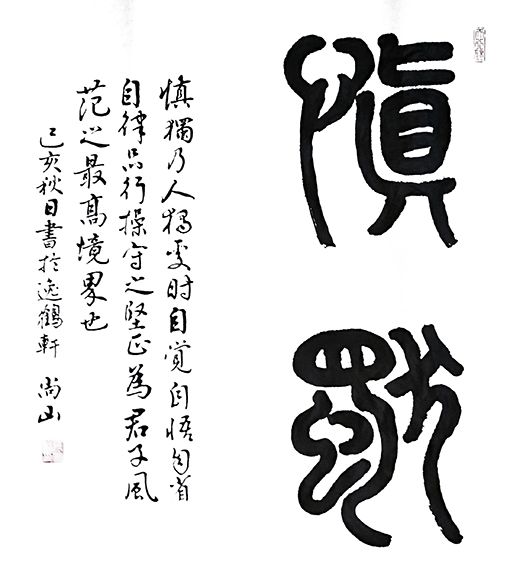 慎獨
慎獨乃人獨處时自覚自悟自省
自律品行操守之堅正為君子風
范之最高境界也
己亥秋日書於逸鶴軒 尚山